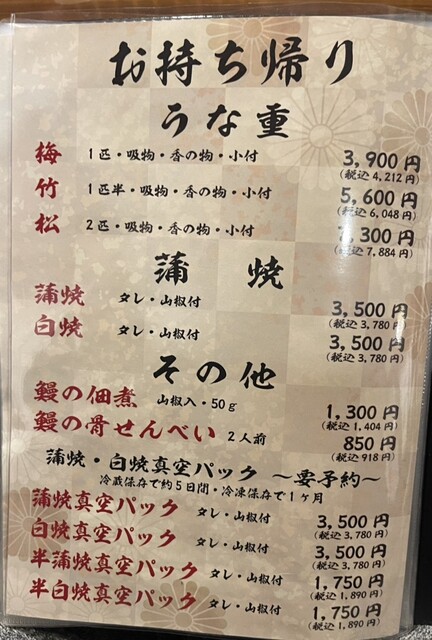 お持ち帰り
うな重
梅 1匹・吸物・香の物・小付 3,900円
(税込4,212円)
竹 1匹半・吸物・香の物・小付 5,600円
(税込6,048円)
松 2匹・吸物・香の物・小付 7,300円
(税込7,884円)
蒲焼
蒲焼 タレ・山椒付 3,500円
(税込3,780円)
白焼 タレ・山椒付 3,500円
(税込3,780円)
その他
鰻の佃煮 山椒入・50g 1,300円
(税込1,404円)
鰻の骨せんべい 2人前 850円
(税込918円)
蒲焼・白焼真空パック ～要予約～
冷蔵保存で約5日間・冷凍保存で1ヶ月
蒲焼真空パック タレ・山椒付 3,500円
(税込3,780円)
白焼真空パック タレ・山椒付 3,500円
(税込3,780円)
半蒲焼真空パック タレ・山椒付 1,750円
(税込1,890円)
半白焼真空パック タレ・山椒付 1,750円
(税込1,890円)